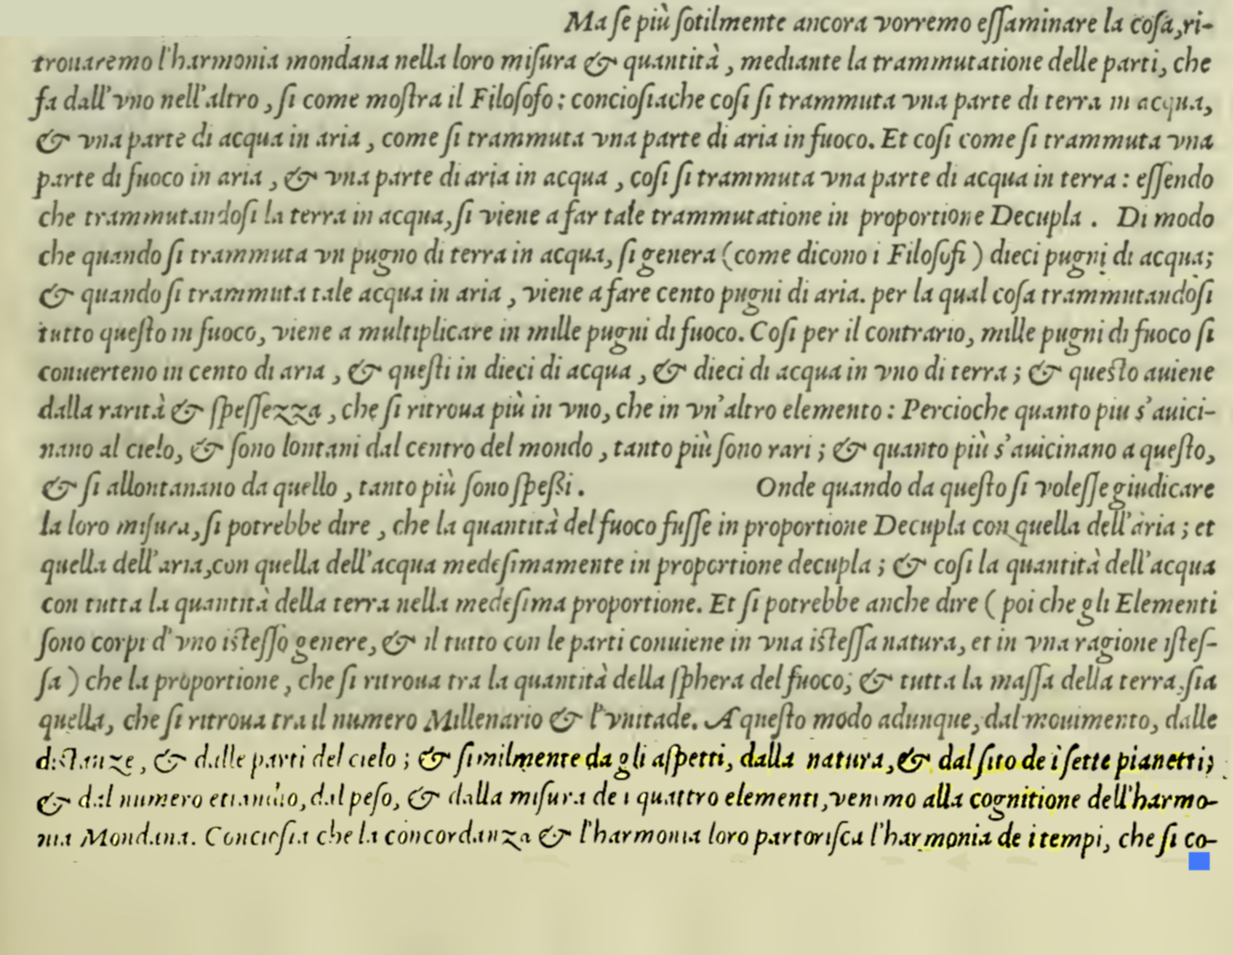 Ma ſe più ſotilmente ancora vorremo eſſaminare la coſa, ri-
trouaremo l'harmonia mondana nella loro miſura & quantità, mediante la trammutatione delle parti, che
fa dall'vno nell'altro, ſi come moſtra il Filoſofo: concioſiache coſi ſi trammuta vna parte di terra in acqua,
& vna parte di acqua in aria, come ſi trammuta vna parte di aria in fuoco. Et coſi come ſi trammuta vna
parte di fuoco in aria, & vna parte di aria in acqua, coſi ſi trammuta vna parte di acqua in terra: eſſendo
che trammutandoſi la terra in acqua, ſi viene a far tale trammutatione in proportione Decupla. Di modo
che quando ſi trammuta vn pugno di terra in acqua, ſi genera (come dicono i Filoſofi) dieci pugni di acqua;
& quando ſi trammuta tale acqua in aria, viene a fare cento pugni di aria. per la qual coſa trammutandoſi
tutto queſto in fuoco, viene a multiplicare in mille pugni di fuoco. Coſi per il contrario, mille pugni di fuoco ſi
conuerteno in cento di aria, & queſti in dieci di acqua, & dieci di acqua in vno di terra; & queſto auiene
dalla rarità & ſpeſſezza, che ſi ritroua più in vno, che in vn'altro elemento: Percioche quanto piu s'auici-
nano al cielo, & ſono lontani dal centro del mondo, tanto più ſono rari; & quanto più s'auicinano a queſto,
& ſi allontanano da quello, tanto più ſono ſpeßi. Onde quando da queſto ſi voleſſe giudicare
la loro miſura, ſi potrebbe dire, che la quantità del fuoco fuſſe in proportione Decupla con quella dell'aria; et
quella dell'aria, con quella dell'acqua medeſimamente in proportione decupla; & coſi la quantità dell'acqua
con tutta la quantità della terra nella medeſima proportione. Et ſi potrebbe anche dire (poi che gli Elementi
ſono corpi d'vno iſteſſo genere, & il tutto con le parti conuiene in vna iſteſſa natura, et in vna ragione iſteſ-
ſa) che la proportione, che ſi ritroua tra la quantità della ſphera del fuoco, & tutta la maſſa della terra, ſia
quella, che ſi ritroua tra il numero Millenario & l'vnitade. A queſto modo adunque, dal mouimento, dalle
diſtanze, & dalle parti del cielo; & ſimilmente da gli aſpetti, dalla natura, & dal ſito de i ſette pianetti;
& dal numero etiandio, dal peſo, & dalla miſura de i quattro elementi, venimo alla cognitione dell'harmo-
nia Mondana. Concioſia che la concordanza & l'harmonia loro partoriſca l'harmonia de i tempi, che ſi co-